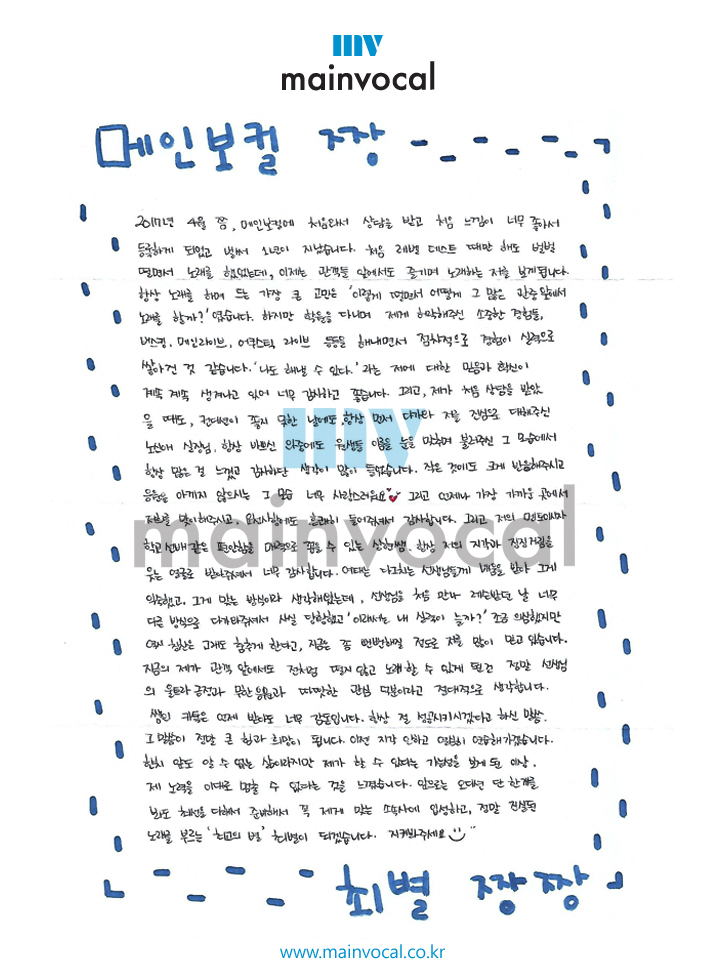 mv
mainvocal
메인보컬 짱
2017년 4월 쯤, 메인보컬에 처음와서 상담을 받고 처음 느낌이 너무 좋아서
등록하게 되었고 벌써 1년이 지났습니다. 처음 레벨 테스트 때만 해도 벌벌
떨면서 노래를 했었는데, 이제는 관객들 앞에서도 즐기며 노래하는 저를 보게됩니다.
항상 노래를 하며 드는 가장 큰 고민은 '이렇게 떨면서 어떻게 그 많은 관중앞에서
노래를 할까?' 였습니다. 하지만 학원을 다니며 제게 허락해주신 소중한 경험들,
버스킹, 메인라이브, 어쿠스틱 라이브 등등을 해내면서 점차적으로 경험이 실력으로
쌓아진 것 같습니다. '나도 해낼 수 있다.' 라는 저에 대한 믿음과 확신이
계속 계속 생겨나고 있어 너무 감사하고 좋습니다. 그리고, 제가 처음 상담을 받았
을 때도, 컨디션이 좋지 못한 날에도 항상 먼저 다가와 저를 진심으로 대해주신
노신애 실장님, 항상 바쁘신 와중에도 원생들 이름을 눈을 맞추며 불러주신 그 모습에서
항상 많은 걸 느꼈고 감사하단 생각이 많이 들었습니다. 작은 것에도 크게 반응해주시고
응원을 아끼지 않으시는 그 모습 너무 사랑스러워요 그리고 언제나 가장 가까운 곳에서
저희를 맞이해주시고, 요청사항에도 흔쾌히 들어주셔서 감사합니다. 그리고 저의 멘토이자
학교선배같은 편안함을 매력으로 꼽을 수 있는 상현쌤. 항상 저의 지각과 징징거림을
웃는 얼굴로 받아주셔서 너무 감사합니다. 여태는 다그치는 선생님들께 배움을 받아 그게
익숙했고, 그게 맞는 방식이라 생각해왔었는데, 선생님을 처음 만나 레슨받던 날 너무
다른 방식으로 다가와주셔서 사실 당황했고 '이래서는 내 실력이 늘까?' 조금 의심했지만
역시 칭찬은 고래도 춤추게 한다고, 지금은 좀 뻔뻔하질 정도로 저를 많이 믿고 있습니다.
지금의 제가 관객 앞에서도 전처럼 떨지 않고 노래할 수 있게 된건 정말 선생님
의 울트라 긍정과 무한 응원과 따뜻한 관심 덕분이라고 절대적으로 생각합니다.
쌤의 카톡은 언제 받아도 너무 감동입니다. 항상 절 성공시키시겠다고 하신 말씀.
그 말씀이 정말 큰 힘과 희망이 됩니다. 이젠 지각 안하고 열심히 연습해가겠습니다.
한치 앞도 알 수 없는 삶이라지만 제가 할 수 있다는 가능성을 보게 된 이상,
제 노력을 이대로 멈출 수 없다는 것을 느꼈습니다. 앞으로는 오디션 단 한개를
봐도 최선을 다해서 준비해서 꼭 제게 맞는 소속사에 입성하고, 정말 진실된
노래를 부르는 '최고의 별' 최별이 되겠습니다. 지켜봐주세요
최별 짱짱
mv
mainvocal
www.mainvocal.co.kr